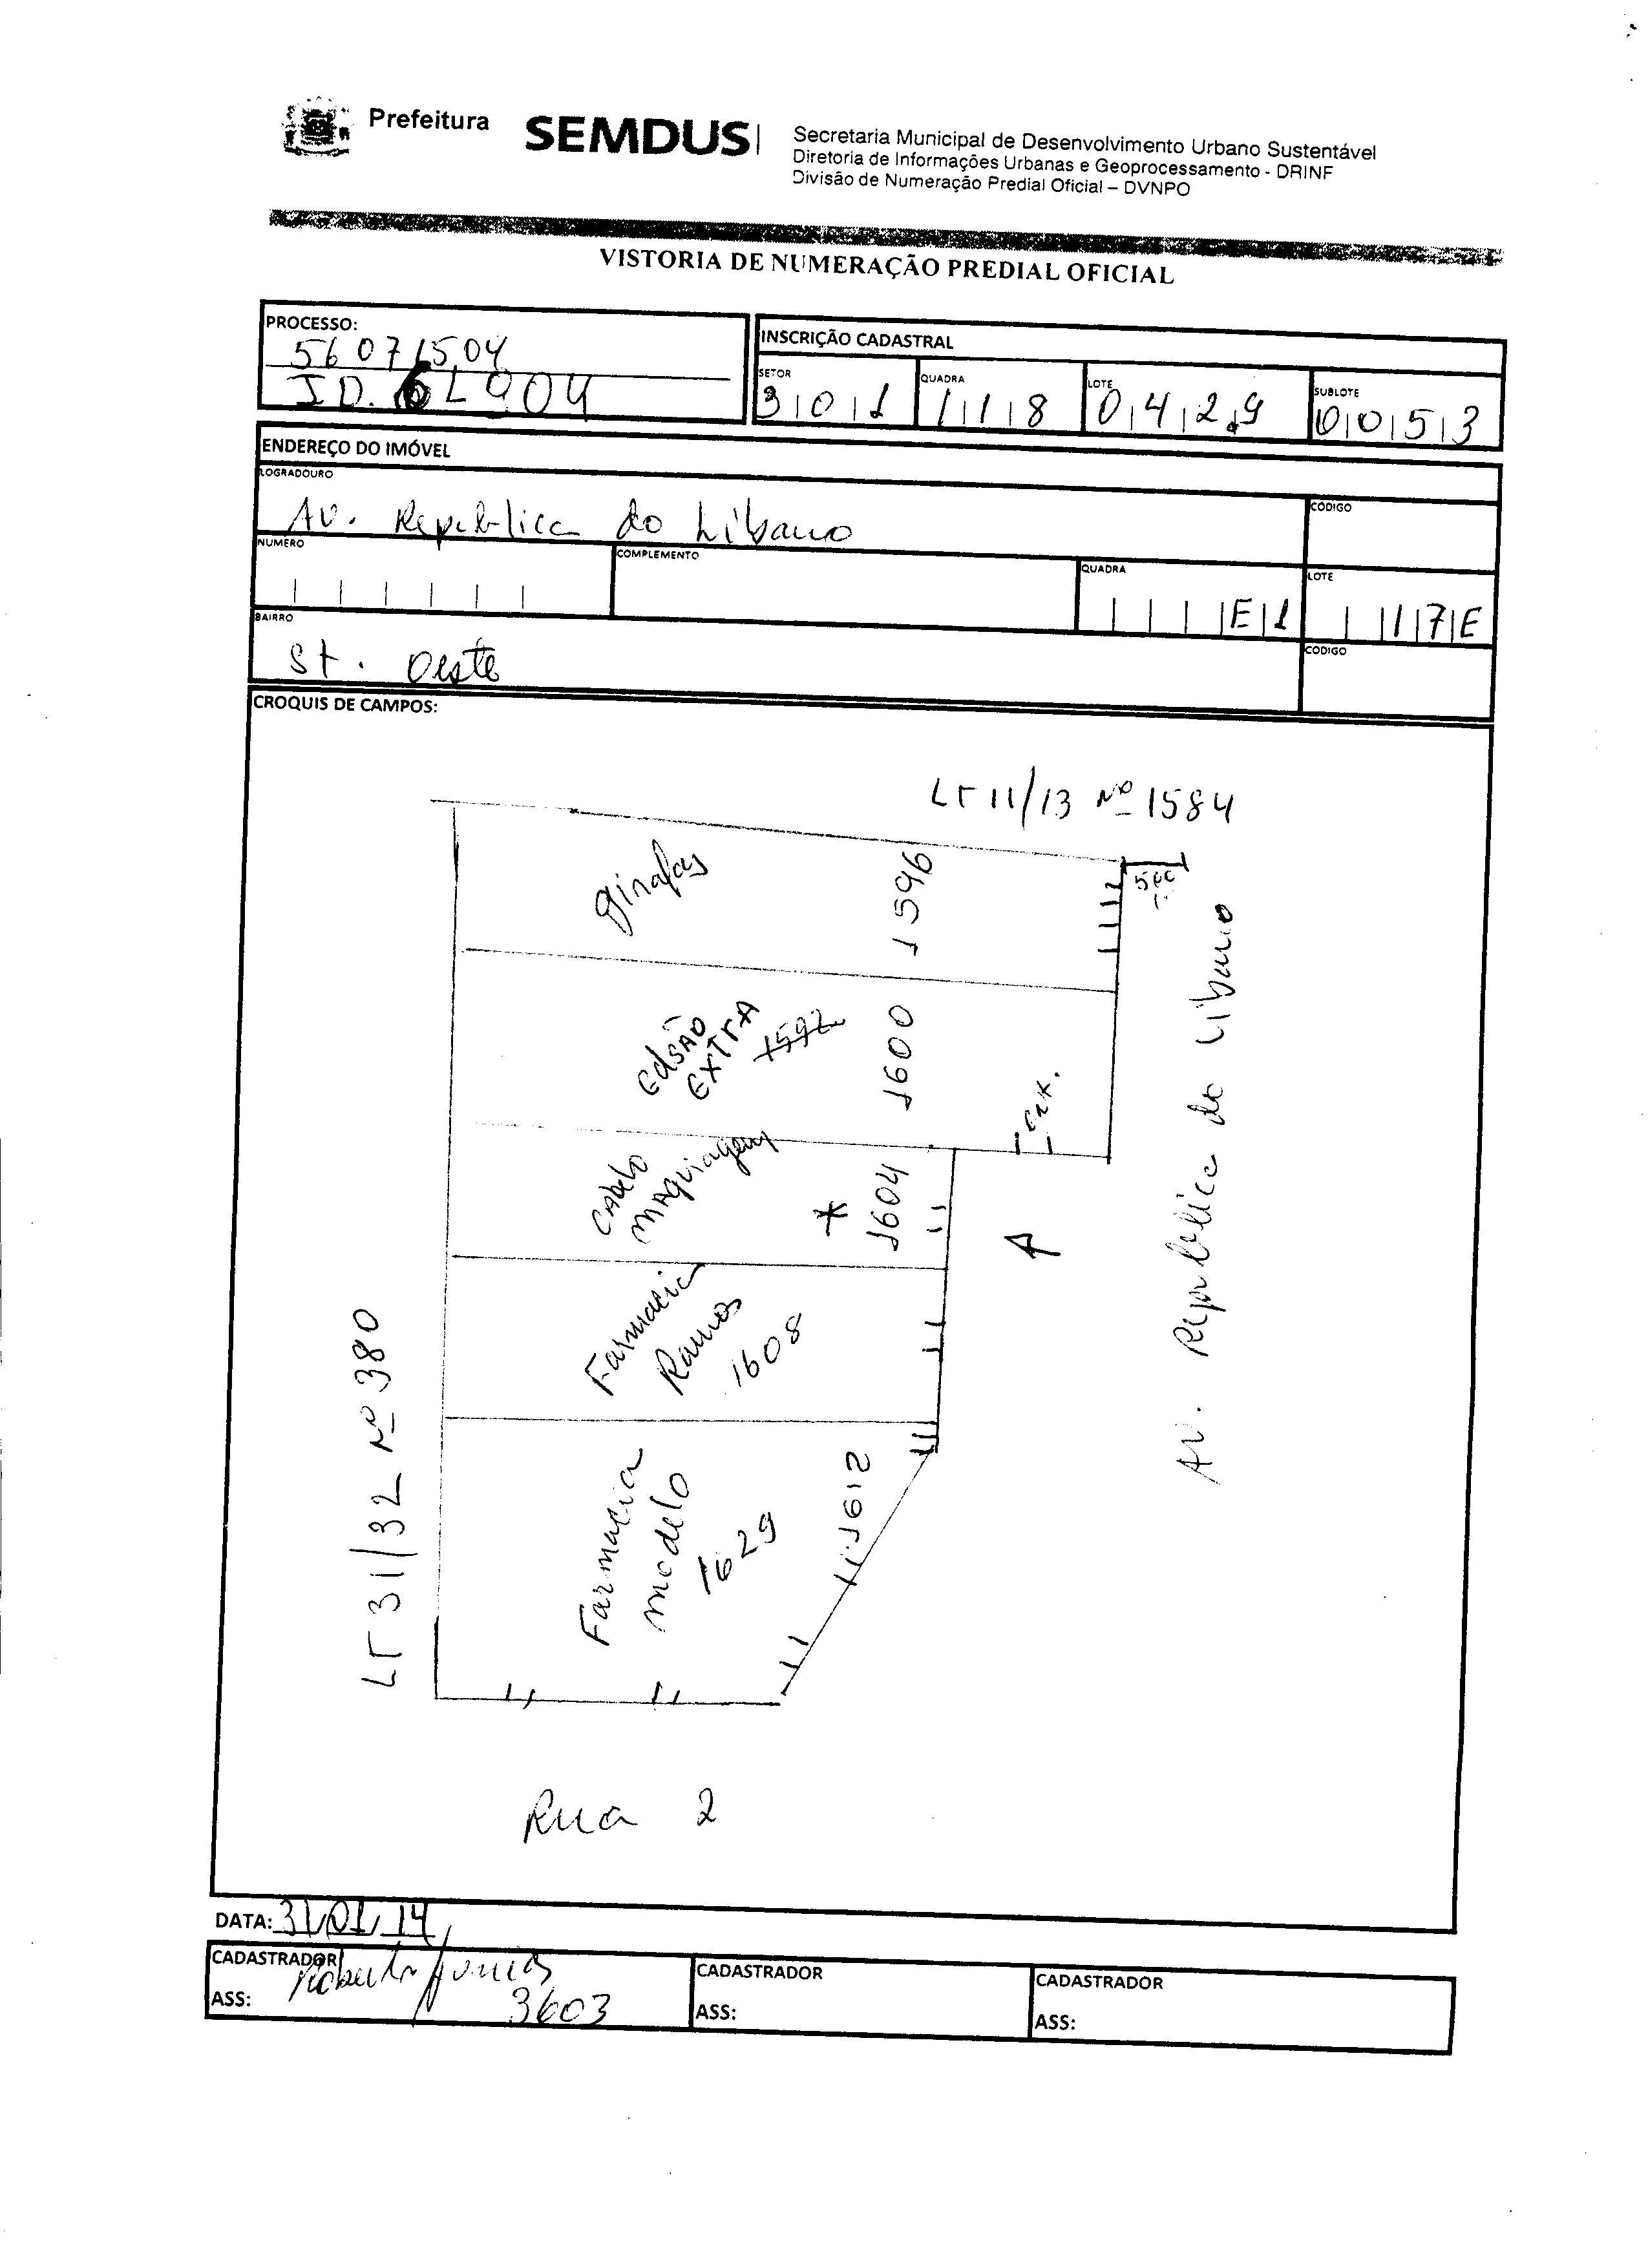 Prefeitura
SEMDUS
Secretaria Municipal de Desenvolvimento Urbano Sustentável
Diretoria de Informações Urbanas e Geoprocessamento - DRINF
Divisão de Numeração Predial Oficial – DVNPO
VISTORIA DE NUMERAÇÃO PREDIAL OFICIAL
PROCESSO:
56071504
INSCRIÇÃO CADASTRAL
SETOR
301
QUADRA
118
LOTE
0429
SUBLOTE
0053
ENDEREÇO DO IMÓVEL
LOGRADOURO
Av. Republica do Libano
CODIGO
NUMERO
COMPLEMENTO
QUADRA
E1
LOTE
17E
BAIRRO
St. Oeste
CODIGO
CROQUIS DE CAMPOS:
LT 11/13 Nº 1584
girafas
1596
500
EdSÃO
EXTRA
1592
1600
CAbelo
MAQuiagem
* 1604
Farmacia
Ramos
1608
Farmacia
modelo
1629
1612
LT 31/32 Nº 380
Av. Republica do Libano
Rua 2
DATA: 31/01/14
CADASTRADOR
ASS:
3603
CADASTRADOR
ASS:
CADASTRADOR
ASS: